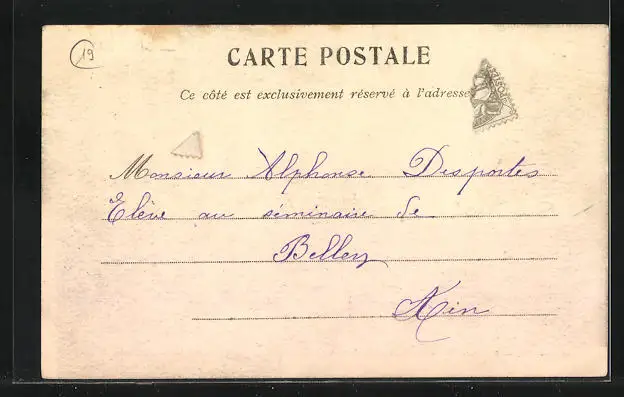 19
CARTE POSTALE
Ce côté est exclusivement réservé à l'adresse
Monsieur Alphonse Desportes
Elève au séminaire de
Belley
Ain